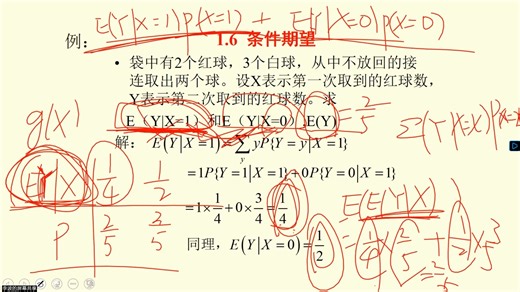 E(Y|X=1)P(X=1) + E(Y|X=0)P(X=0)
例：
1.6 条件期望
• 袋中有2个红球，3个白球，从中不放回的接
连取出两个球。设X表示第一次取到的红球数，
Y表示第二次取到的红球数。求
E（Y|X=1）和E（Y|X=0）,E(Y) = 2/5
解： E(Y|X=1)=∑_y yP{Y=y|X=1}
=1P{Y=1|X=1}+0P{Y=0|X=1}
=1×1/4+0×3/4=1/4
同理，E(Y|X=0)=1/2
g(X)
E(Y|X) 1/4 1/2
P 2/5 3/5
E(E(Y|X)
=1/4×2/5+1/2×3/5
=2/5